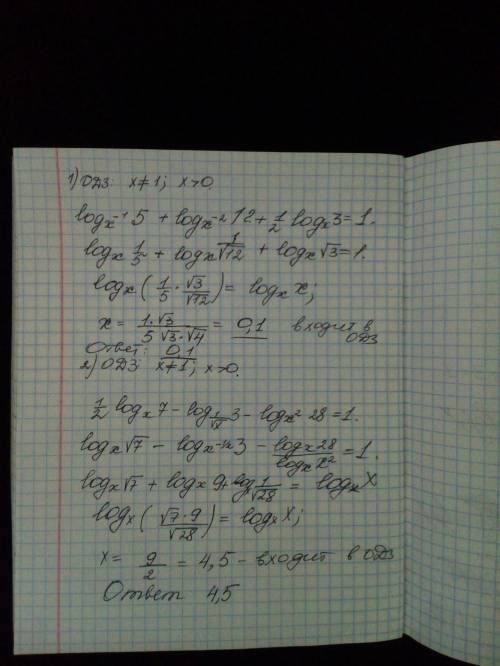 1) ОДЗ: x≠1; x>0.
log_{x^{-1}} 5 + log_{x^{-2}} 12 + 1/2 log_x 3 = 1.
log_x 1/5 + log_x 1/√12 + log_x √3 = 1.
log_x (1/5 · √3/√12) = log_x x;
x = 1·√3/5√3·√4 = 0,1 входит в ОДЗ
Ответ: 0,1
2) ОДЗ: x≠1; x>0.
1/2 log_x 7 - log_{1/√x} 3 - log_{x^2} 28 = 1.
log_x √7 - log_{x^{-1/2}} 3 - log_x 28/log_x x^2 = 1.
log_x √7 + log_x 9 + log_x 1/√28 = log_x x
log_x (√7·9/√28) = log_x x;
x = 9/2 = 4,5 - входит в ОДЗ
Ответ 4,5